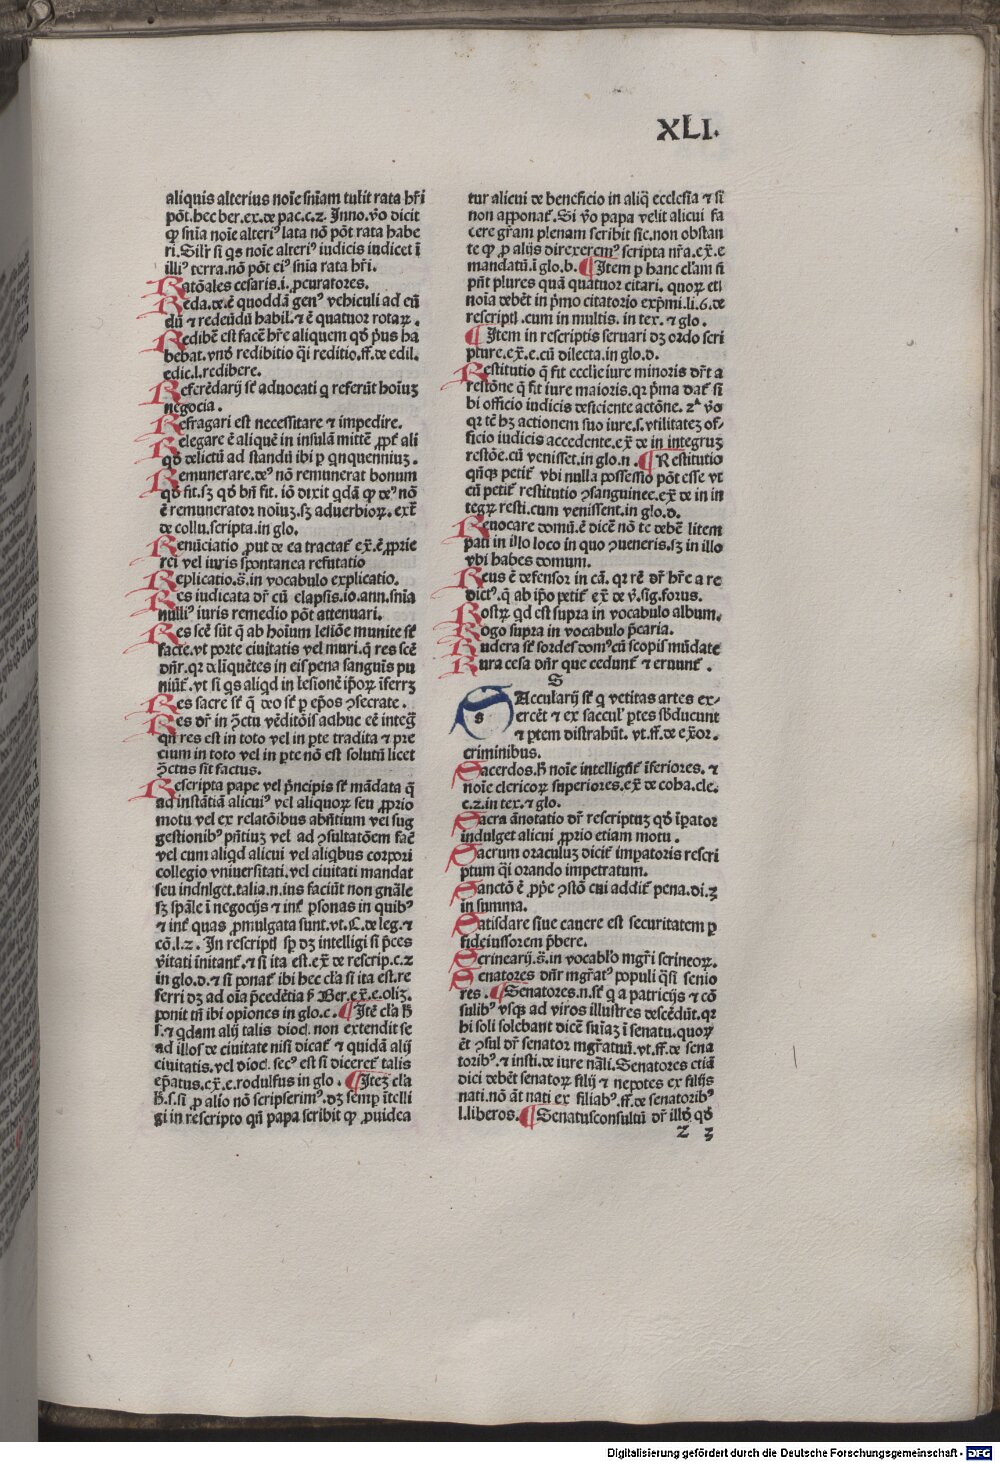 XLI.
aliquis alterius noīe snīam tulit rata hr̄i
pōt. hec ber. ex. de pac. c. 2. Inno. v̄o dicit
ꝙ snīa noīe alteriꝰ lata nō pōt rata habe
ri. Silr̄ si q̄s noīe alteriꝰ iudicis iudicet ī
illiꝰ terra. nō pōt eiꝰ snīa rata hr̄i.
Ratōales cesaris. i. ꝓcuratores.
Reda. de. ē quoddā genꝰ vehiculi ad cū
dū ⁊ redeūdū habil. ⁊ ē quatuor rotaꝝ.
Redibē est facē hr̄e aliquem qđ p̄us ha
bebat. vnđ redibitio q̄i reditio. ff. de edil.
edic. l. redibere.
Referēdarij sē aduocati q̄ referūt hoīuꝫ
negocia.
Refragari est necessitare ⁊ impedire.
Relegare ē aliquē in insulā mittē ꝓpt̄ ali
qđ delictū ad standū ibi ꝑ qnquenniuꝫ.
Remunerare. deꝰ nō remunerat bonum
qđ fit. sꝫ qđ bn̄ fit. iō dixit qdā ꝙ deꝰ nō
ē remunerator noiuꝫ. sꝫ aduerbioꝝ. ext̄
de collu. scripta. in glo.
Renūciatio ꝓut de ea tractat̄ ex̄. ē ꝓprie
rei vel iuris spontanea refutatio
Replicatio. s̄. in vocabulo explicatio.
Res iudicata dr̄ cū elapsis. io. ann. snīa
nulliꝰ iuris remedio pōt attenuari.
Res scē sūt q̄ ab hoīum lesiōe munite sē
facte. vt porte ciuitatis vel muri. q̄ res scē
dn̄r. qꝛ delīquētes in eis pena sanguīs pu
niūt̄. vt si q̄s aliqd in lesionē ip̄oꝝ īferrꝫ
Res sacre sē q̄ deo sē ꝑ ep̄os ꝯsecrate.
Res dr̄ in ꝯctu vēditōis adhuc eē integͣ
qn̄ res est in toto vel in ꝑte tradita ⁊ pre
cium in toto vel in ꝑte nō est solutū licet
ꝯctus sit factus.
Rescripta pape vel p̄ncipis sē mādata q̄
ad instātiā alicuiꝰ vel aliquoꝝ seu ꝓprio
motu vel ex relatōibus abn̄tium vel sug
gestionibꝰ pn̄tiuꝫ vel ad ꝯsultatōem fac̄
vel cum aliqd alicui vel aliqbus corpori
collegio vniuersitati. vel ciuitati mandat
seu indnlget. talia. n. ius faciūt non gnāle
sꝫ spāle ī negocijs ⁊ int̄ ꝑsonas in quibꝰ
⁊ int̄ quas ꝓmulgata sunt. vt. C. de leg. ⁊
cō. l. 2. In rescriptꝭ sꝑ dꝫ intelligi si p̄ces
v̄itati īnitant̄. ⁊ si ita est. ex̄ de rescrip. c. 2
in glo. d. ⁊ si ponat̄ ibi hec cla si ita est. re
ferri dꝫ ad oīa p̄cedētia ꝑ Ber. ex̄. e. oliꝫ.
ponit tn̄ ibi opiones in glo. c. ¶ Itē cla ħ
s. ⁊ qdam alij talis dioc. non extendit se
ad illos de ciuitate nisi dicat̄ ⁊ quidā alij
ciuitatis. vel dioc. secꝰ est si diceret̄ talis
ep̄atus. ex̄. e. rodulfus in glo. ¶ Iteꝫ cla
ħ. s. si ꝓ alio nō scripserimꝰ. dꝫ semꝑ ītelli
gi in rescripto qn̄ papa scribit ꝙ ꝓuidea
tur alicui de beneficio in aliq̄ ecclesia ⁊ si
non apponat̄. Si v̄o papa velit alicui fa
cere gr̄am plenam scribit sic. non obstan
te ꝙ ꝓ alijs direxeremꝰ scripta nr̄a. ex̄. e
mandatū. ī glo. b. ¶ Item ꝑ hanc clam si
pn̄t plures quā quatuor citari. quoꝝ etī
noīa debēt in p̄mo citatorio exp̄mi. li. 6. de
rescriptꝭ. cum in multis. in tex. ⁊ glo.
¶ Item in rescriptis seruari dꝫ ordo scri
pture. ex̄. e. cū dilecta. in glo. d.
Restitutio q̄ fit ecclie iure minoris dr̄t a
restōne q̄ fit iure maioris. qꝛ p̄ma dat̄ si
bi officio iudicis deficiente actōne. 2ᵃ v̄o
qꝛ tē hꝫ actionem suo iure. s. vtilitateꝫ of⸗
ficio iudicis accedente. ex̄ de in integruꝫ
restōe. cū venisset. in glo. n. ¶ Restitutio
qn̄qꝫ petit̄ vbi nulla possessio pōt esse vt
cū petit̄ restitutio ꝯsanguinee. ex̄ de in in
tegꝝ resti. cum venissent. in glo. d.
Reuocare domū. ē dicē nō te debē litem
pati in illo loco in quo ꝯueneris. sꝫ in illo
vbi habes domum.
Reus ē defensor in cā. qꝛ rē dr̄ hr̄e a re
dictꝰ. q̄ ab ip̄o petit̄ ex̄ de v̄. sig. forus.
Rostꝝ qd est supra in vocabulo album.
Rogo supra in vocabulo p̄caria.
Rudera sē sordes domꝰ cū scopis mūdate
Rura cesa dn̄r que cedunt̄ ⁊ eruunt̄.
S
SAccularij sē q̄ vetitas artes ex⸗
ercēt ⁊ ex sacculꝭ ꝑtes sb̄ducunt
⁊ ꝑtem distrabūt. vt. ff. de ex̄or.
criminibus.
Sacerdos. ħ noīe intelligūt̄ īferiores. ⁊
noīe clericoꝝ superiores. ex̄ de coha. cle.
c. 2. in tex. ⁊ glo.
Sacra ānotatio dr̄ rescriptuꝫ qđ īpator
indulget alicui ꝓprio etiam motu.
Sacrum oraculuꝫ dicit̄ impatoris rescri
ptum q̄i orando impetratum.
Sanctō ē ꝓpe ꝯstō cui addit̄ pena. di. 3
in summa.
Satisdare siue cauere est securitatem ꝑ
fideiussorem p̄bere.
Scrinearij. s̄. in vocablo mgr̄i scrineoꝝ.
Senatores dn̄r mgr̄atꝰ populi q̄si senio
res. ¶ Senatores. n. sē q̄ a patricijs ⁊ cō
sulibꝰ vsqꝫ ad viros illustres descēdūt. qꝛ
hi soli solebant dicē snīaꝫ ī senatu. quoꝝ
ēt ꝯsul dr̄ senator mgr̄atuū. vt. ff. de sena
toribꝰ. ⁊ insti. de iure nāli. Senatores etiā
dici debēt senatoꝝ filij ⁊ nepotes ex filijs
nati. nō āt nati ex filiabꝰ. ff. de senatoribꝰ
l. liberos. ¶ Senatusconsultū dr̄ illđ qđ
2 3
Digitalisierung gefördert durch die Deutsche Forschungsgemeinschaft - DFG